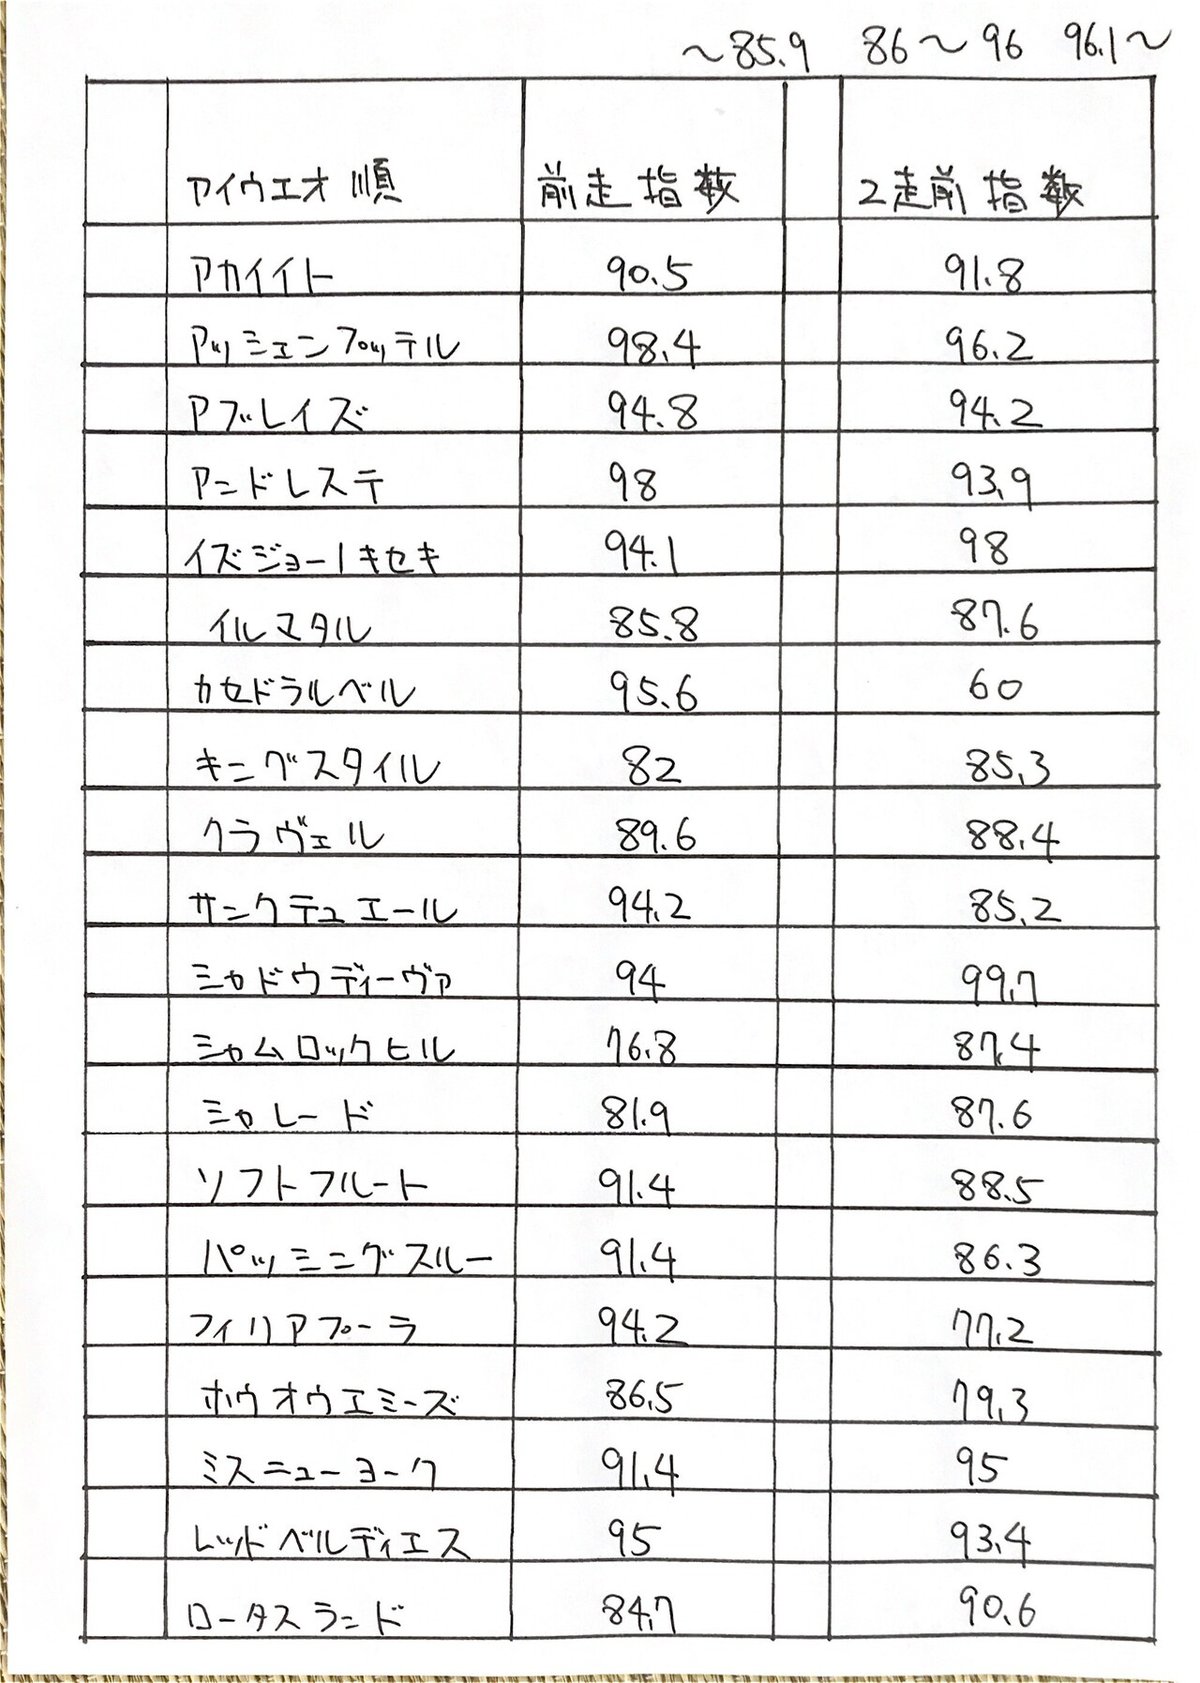 ～85.9 86～96 96.1～
アイウエオ順 前走指数 2走前指数
アカイイト 90.5 91.8
アッシェンプッテル 98.4 96.2
アブレイズ 94.8 94.2
アンドレステ 98 93.9
イズジョーノキセキ 94.1 98
イルマタル 85.8 87.6
カセドラルベル 95.6 60
キングスタイル 82 85.3
クラヴェル 89.6 88.4
サンクテュエール 94.2 85.2
シャドウディーヴァ 94 99.7
シャムロックヒル 76.8 87.4
シャレード 81.9 87.6
ソフトフルート 91.4 88.5
パッシングスルー 91.4 86.3
フィリアプーラ 94.2 77.2
ホウオウエミーズ 86.5 79.3
ミスニューヨーク 91.4 95
レッドベルディエス 95 93.4
ロータスランド 84.7 90.6